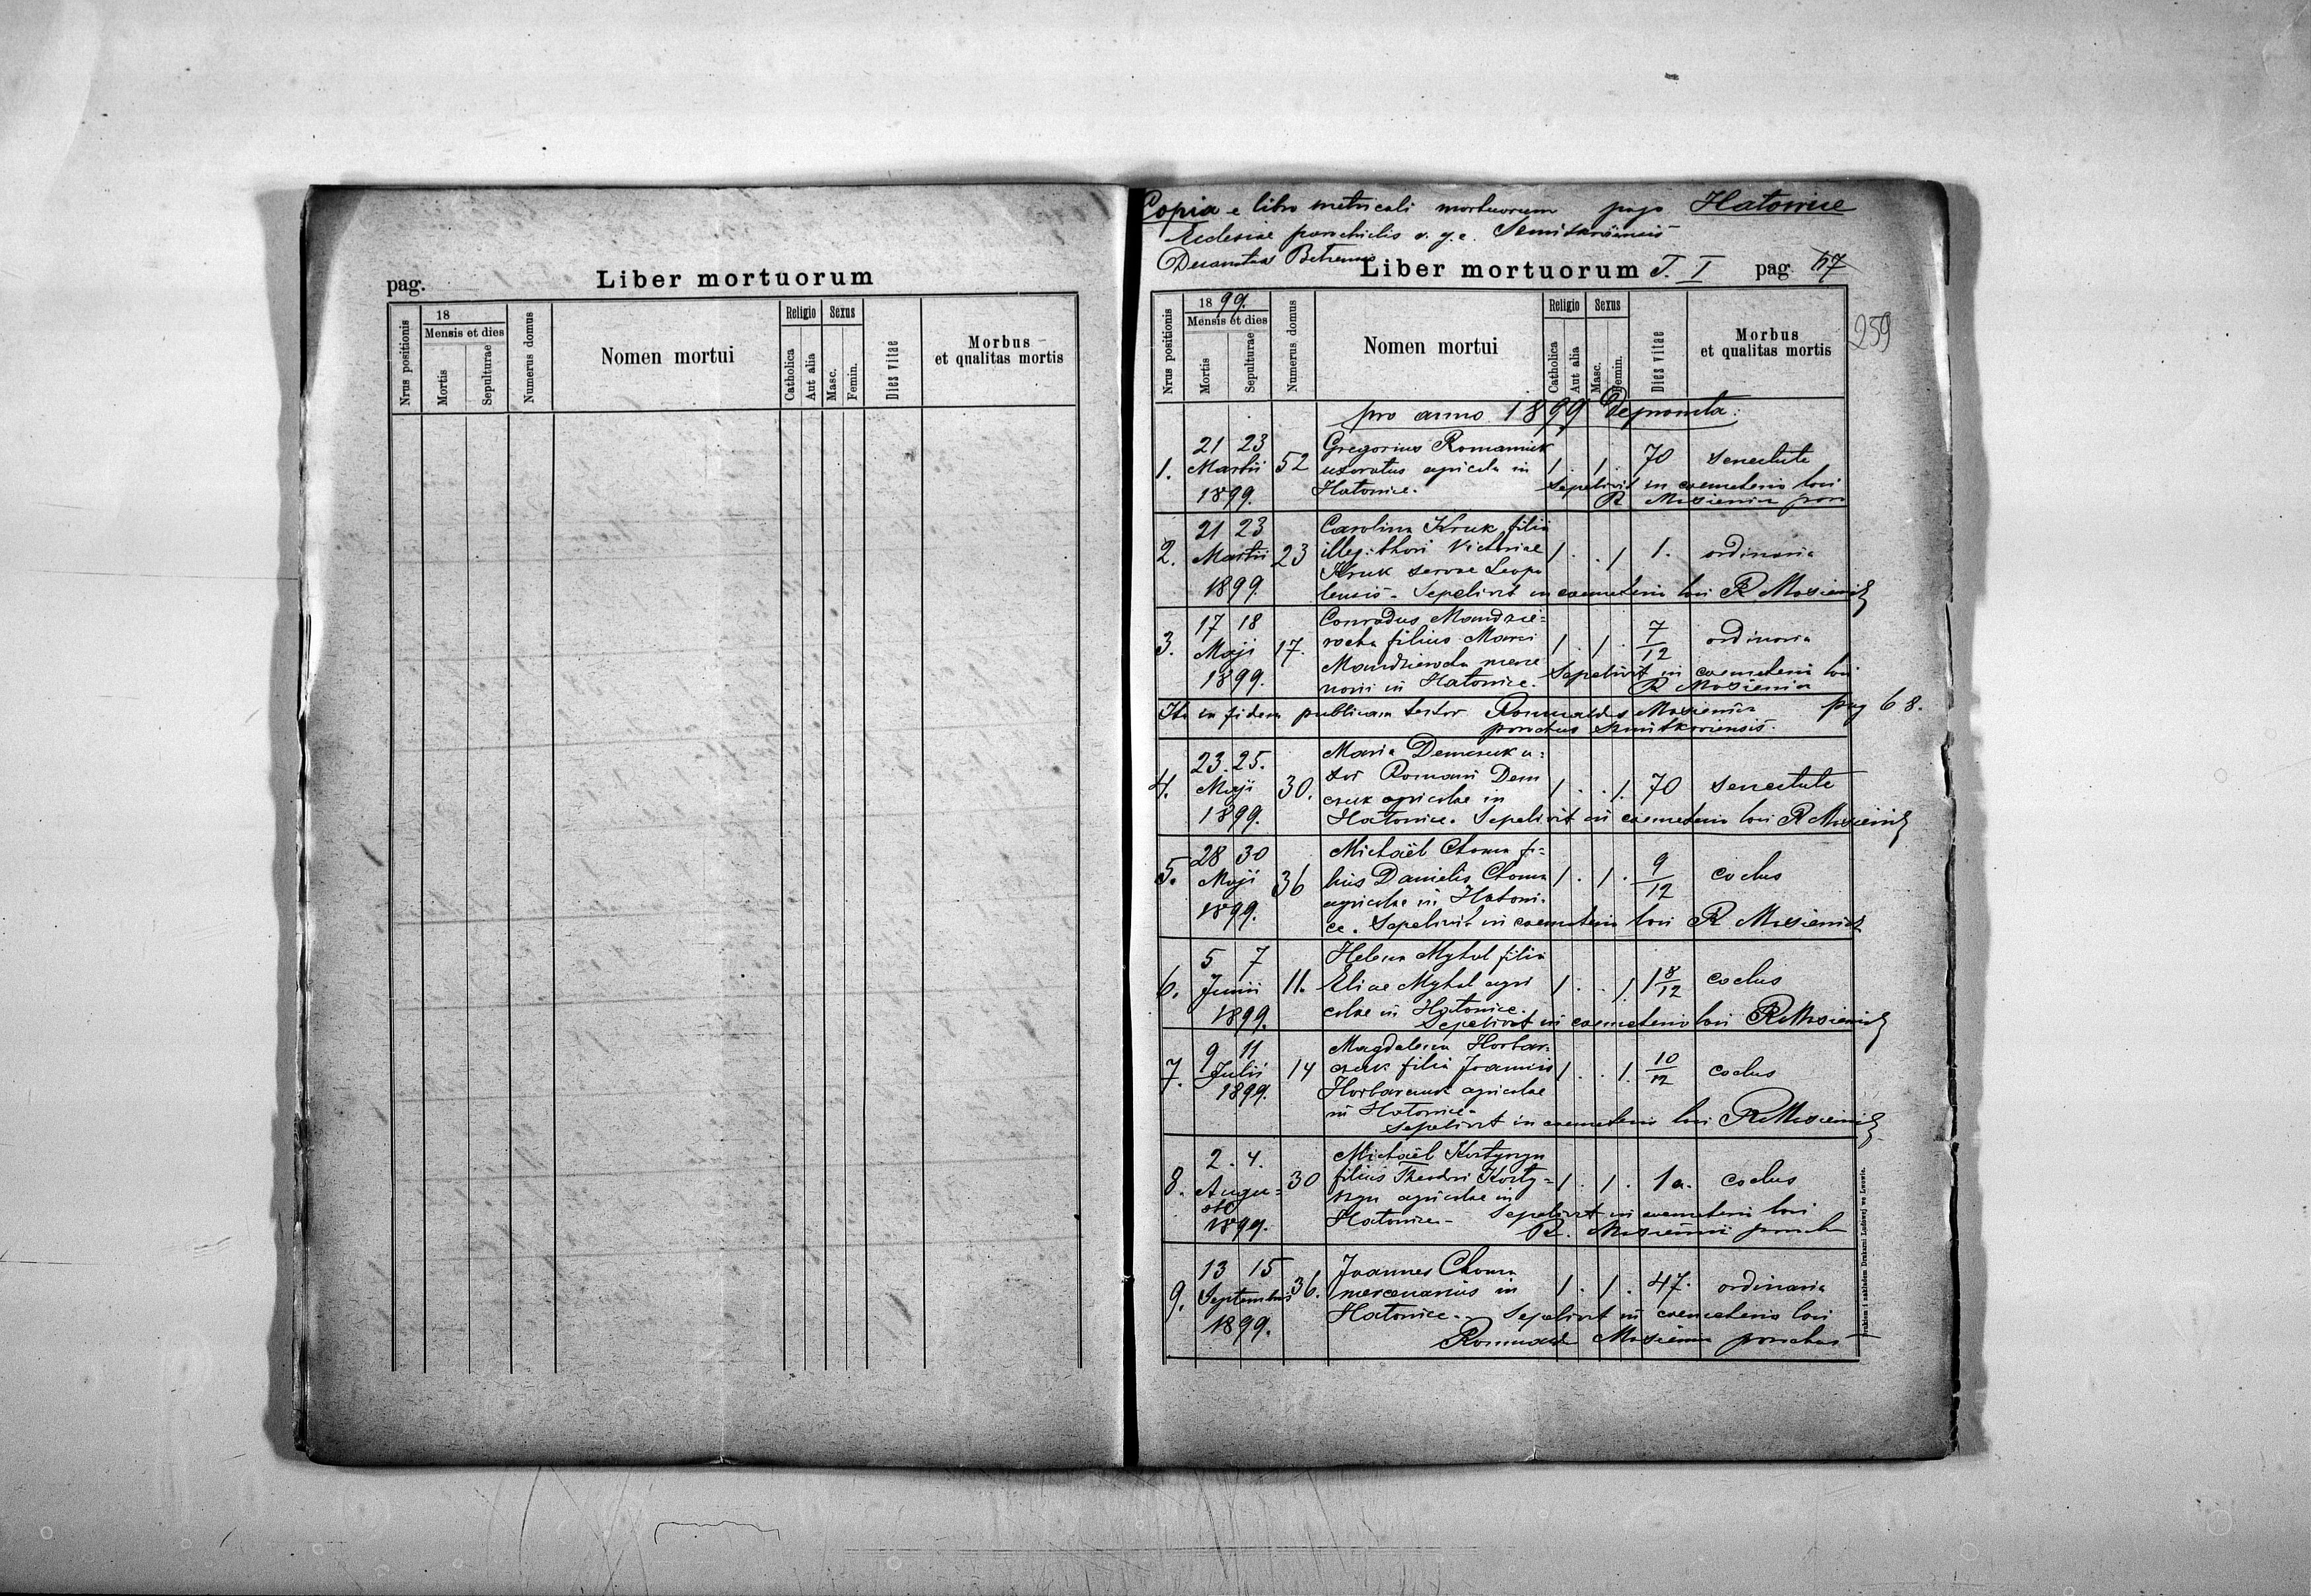 pag.
Liber mortuorum
Nrus positionis
18
Mensis et dies
Mortis
Sepulturae
Numerus domus
Nomen mortui
Religio
Catholica
Aut alia
Sexus
Masc.
Femin.
Dies vitae
Morbus
et qualitas mortis
Copia e libro metricali mortuorum pago Hatowice
Ecclesiae parochialis r. g. c.
Decanatus
Liber mortuorum T. I pag. 67
259
Nrus positionis
1899.
Mensis et dies
Mortis
Sepulturae
Numerus domus
Nomen mortui
Religio
Catholica
Aut alia
Sexus
Masc.
Femin.
Dies vitae
Morbus
et qualitas mortis
pro anno 1899 Deprompta.
21 23 Gregorius Romaniuk
1. Martii 52 uxoratus agricola in 1 . 1 . 70 senectute
1899. Hatowice. Sepelivit in coemeterio loci
R Mosiewicz paro
21 23 Carolina Kruk filia
2. Martii 23 illeg. thori Victoriae 1 . . 1 1. ordinaria
Kruk servae Leopo
1899. liensis - Sepelivit in coemeterio loci R Mosiewicz
17 18 Conradus Mandzie-
3. Maji 17. rocha filius Marci 1 . 1 . 7/12 ordinaria
Mandzierocha merce
1899. narii in Hatowice. Sepelivit in coemeterio loci
R Mosiewicz
In fidem publicam testor Romualdus Mosiewicz pag 68.
parochus
23. 25. Maria Demczuk u-
4. Maji 30. xor Romani Dem 1 . . 1. 70 senectute
czuk agricolae in
1899. Hatowice. Sepelivit in coemeterio loci R Mosiewicz
28 30 Michaël Choma fi-
5. Maji 36 lius Danielis Choma 1 . 1 . 9/12 coclus
agricolae in Hatowi-
1899. ce. Sepelivit in coemeterio loci R Mosiewicz
5 7 Helena Mytal filia
6. Junii 11. Eliae Mytal agri 1 . . 1. 1 8/12 coclus
1899. colae in Hatowice.
Sepelivit in coemeterio loci R Mosiewicz
9 11 Magdalena Horbar-
7. Julii 14 czuk filia Joannis 1 . . 1. 10/12 coclus
1899. Horbarczuk agricolae
in Hatowice.
Sepelivit in coemeterio loci R Mosiewicz
2. 4. Michaël
8. Augu- 30 filius Theodori 1 . 1 . 1 a. coclus
sti agricolae in
1899. Hatowice. - Sepelivit in coemeterio loci
R. Mosiewicz paroch
13 15 Joannes Choma
9. Septembris 36. mercenarius in 1 . 1 . 47. ordinaria
1899. Hatowice. - Sepelivit in coemeterio loci
Romuald Mosiewicz parochus
Drukiem i nakładem Drukarni Ludowej we Lwowie.